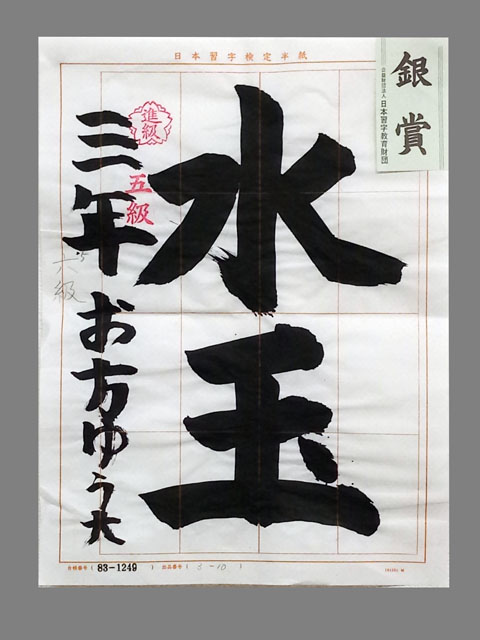 日本習字検定半紙
銀賞
公益財団法人 日本習字教育財団
水玉
進級
五級
三年 お方ゆう大
六級
83-1249
出品番号 ( 3-10 )